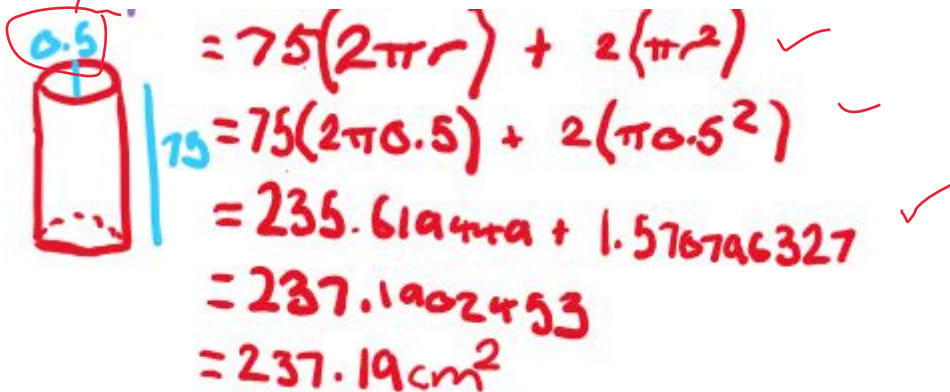 0.5
= 75(2πr) + 2(πr²)
75
= 75(2π0.5) + 2(π0.5²)
= 235.619449 + 1.570796327
= 237.1902453
= 237.19cm²